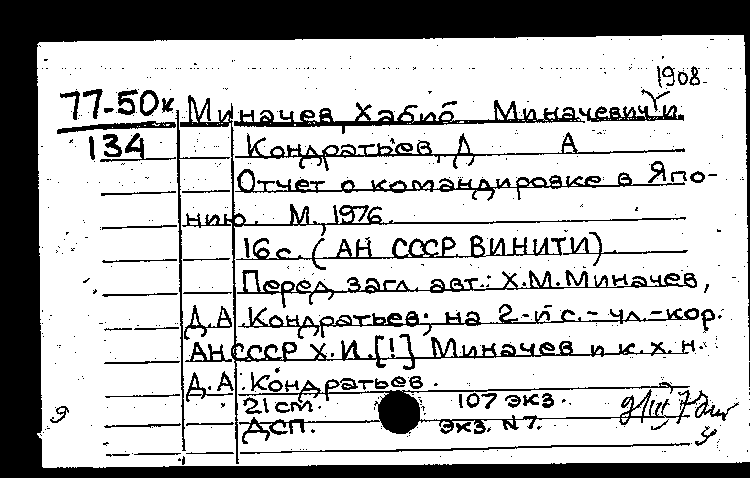 1908
77-50к Миначев, Хабиб Миначевич и.
134 Кондратьев, Д А
Отчет о командировке в Япо-
нию. М., 1976.
16 с. (АН СССР. ВИНИТИ).
Перед загл. авт.: Х.М.Миначев,
Д.А.Кондратьев; на 2-й с.- чл.-кор.
АН СССР Х.И.[!] Миначев и к.х.н.
Д.А.Кондратьев.
21 см. 107 экз.
ДСП. экз. N 7.